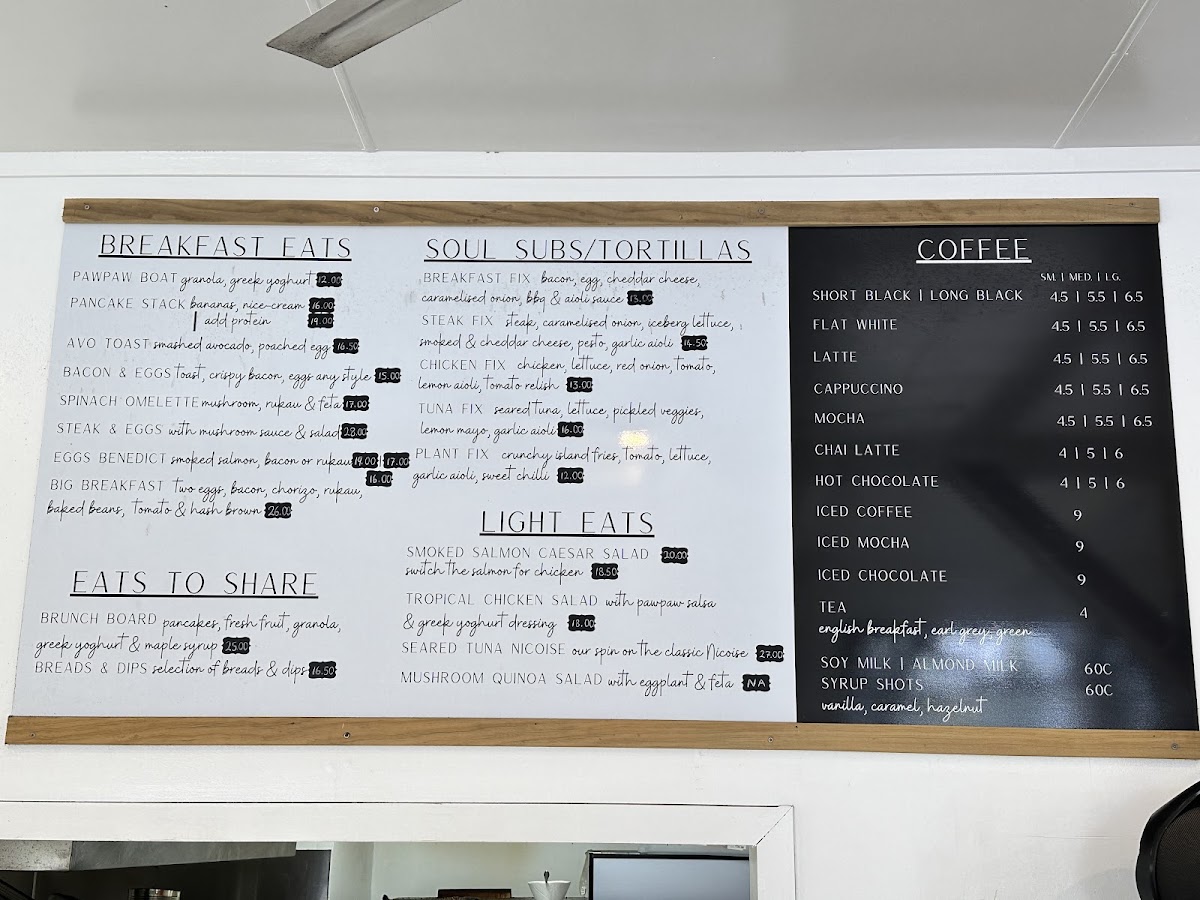 BREAKFAST EATS
PAWPAW BOAT granola, greek yoghurt 12.00
PANCAKE STACK bananas, nice-cream 16.00
| add protein 19.00
AVO TOAST smashed avocado, poached egg 16.50
BACON & EGGS toast, crispy bacon, eggs any style 15.00
SPINACH OMELETTE mushroom, rukau & feta 17.00
STEAK & EGGS with mushroom sauce & salad 28.00
EGGS BENEDICT smoked salmon, bacon or rukau 19.00 17.00
16.00
BIG BREAKFAST two eggs, bacon, chorizo, rukau,
baked beans, tomato & hash brown 26.00
EATS TO SHARE
BRUNCH BOARD pancakes, fresh fruit, granola,
greek yoghurt & maple syrup 25.00
BREADS & DIPS selection of breads & dips 16.50
SOUL SUBS/TORTILLAS
BREAKFAST FIX bacon, egg, cheddar cheese,
caramelised onion, bbq & aioli sauce 13.00
STEAK FIX steak, caramelised onion, iceberg lettuce,
smoked & cheddar cheese, pesto, garlic aioli 14.50
CHICKEN FIX chicken, lettuce, red onion, tomato,
lemon aioli, tomato relish 13.00
TUNA FIX seared tuna, lettuce, pickled veggies,
lemon mayo, garlic aioli 16.00
PLANT FIX crunchy island fries, tomato, lettuce,
garlic aioli, sweet chilli 12.00
LIGHT EATS
SMOKED SALMON CAESAR SALAD 20.00
switch the salmon for chicken 18.50
TROPICAL CHICKEN SALAD with pawpaw salsa
& greek yoghurt dressing 18.00
SEARED TUNA NICOISE our spin on the classic Nicoise 27.00
MUSHROOM QUINOA SALAD with eggplant & feta NA
COFFEE
SM. | MED. | LG.
SHORT BLACK | LONG BLACK 4.5 | 5.5 | 6.5
FLAT WHITE 4.5 | 5.5 | 6.5
LATTE 4.5 | 5.5 | 6.5
CAPPUCCINO 4.5 | 5.5 | 6.5
MOCHA 4.5 | 5.5 | 6.5
CHAI LATTE 4 | 5 | 6
HOT CHOCOLATE 4 | 5 | 6
ICED COFFEE 9
ICED MOCHA 9
ICED CHOCOLATE 9
TEA 4
english breakfast, earl grey, green
SOY MILK | ALMOND MILK 60C
SYRUP SHOTS 60C
vanilla, caramel, hazelnut